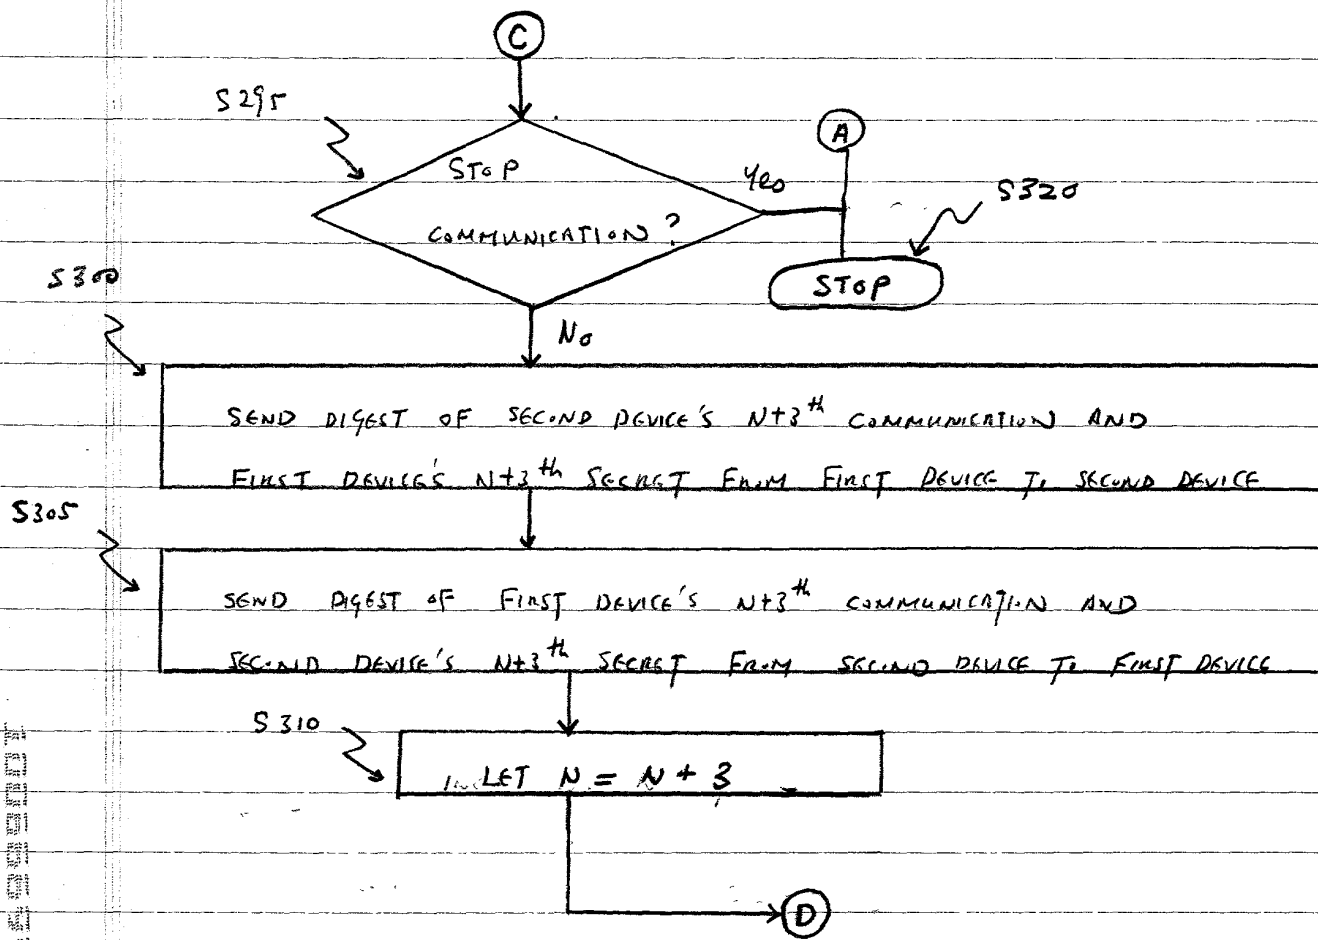 C
S295
A
STOP
Yes
S320
COMMUNICATION?
S300
STOP
No
SEND DIGEST OF SECOND DEVICE'S N+3th COMMUNICATION AND
FIRST DEVICE'S N+3th SECRET FROM FIRST DEVICE TO SECOND DEVICE
S305
SEND DIGEST OF FIRST DEVICE'S N+3th COMMUNICATION AND
SECOND DEVICE'S N+3th SECRET FROM SECOND DEVICE TO FIRST DEVICE
S310
LET N = N + 3
D